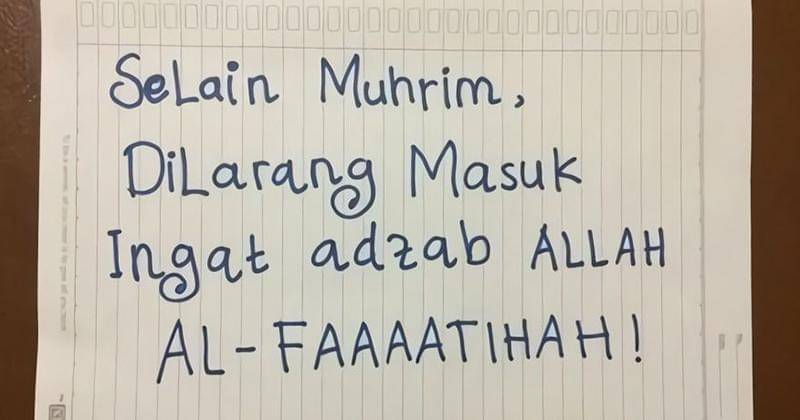 SeLain Muhrim,
DiLarang Masuk
Ingat adzab ALLAH
AL-FAAAATIHAH!